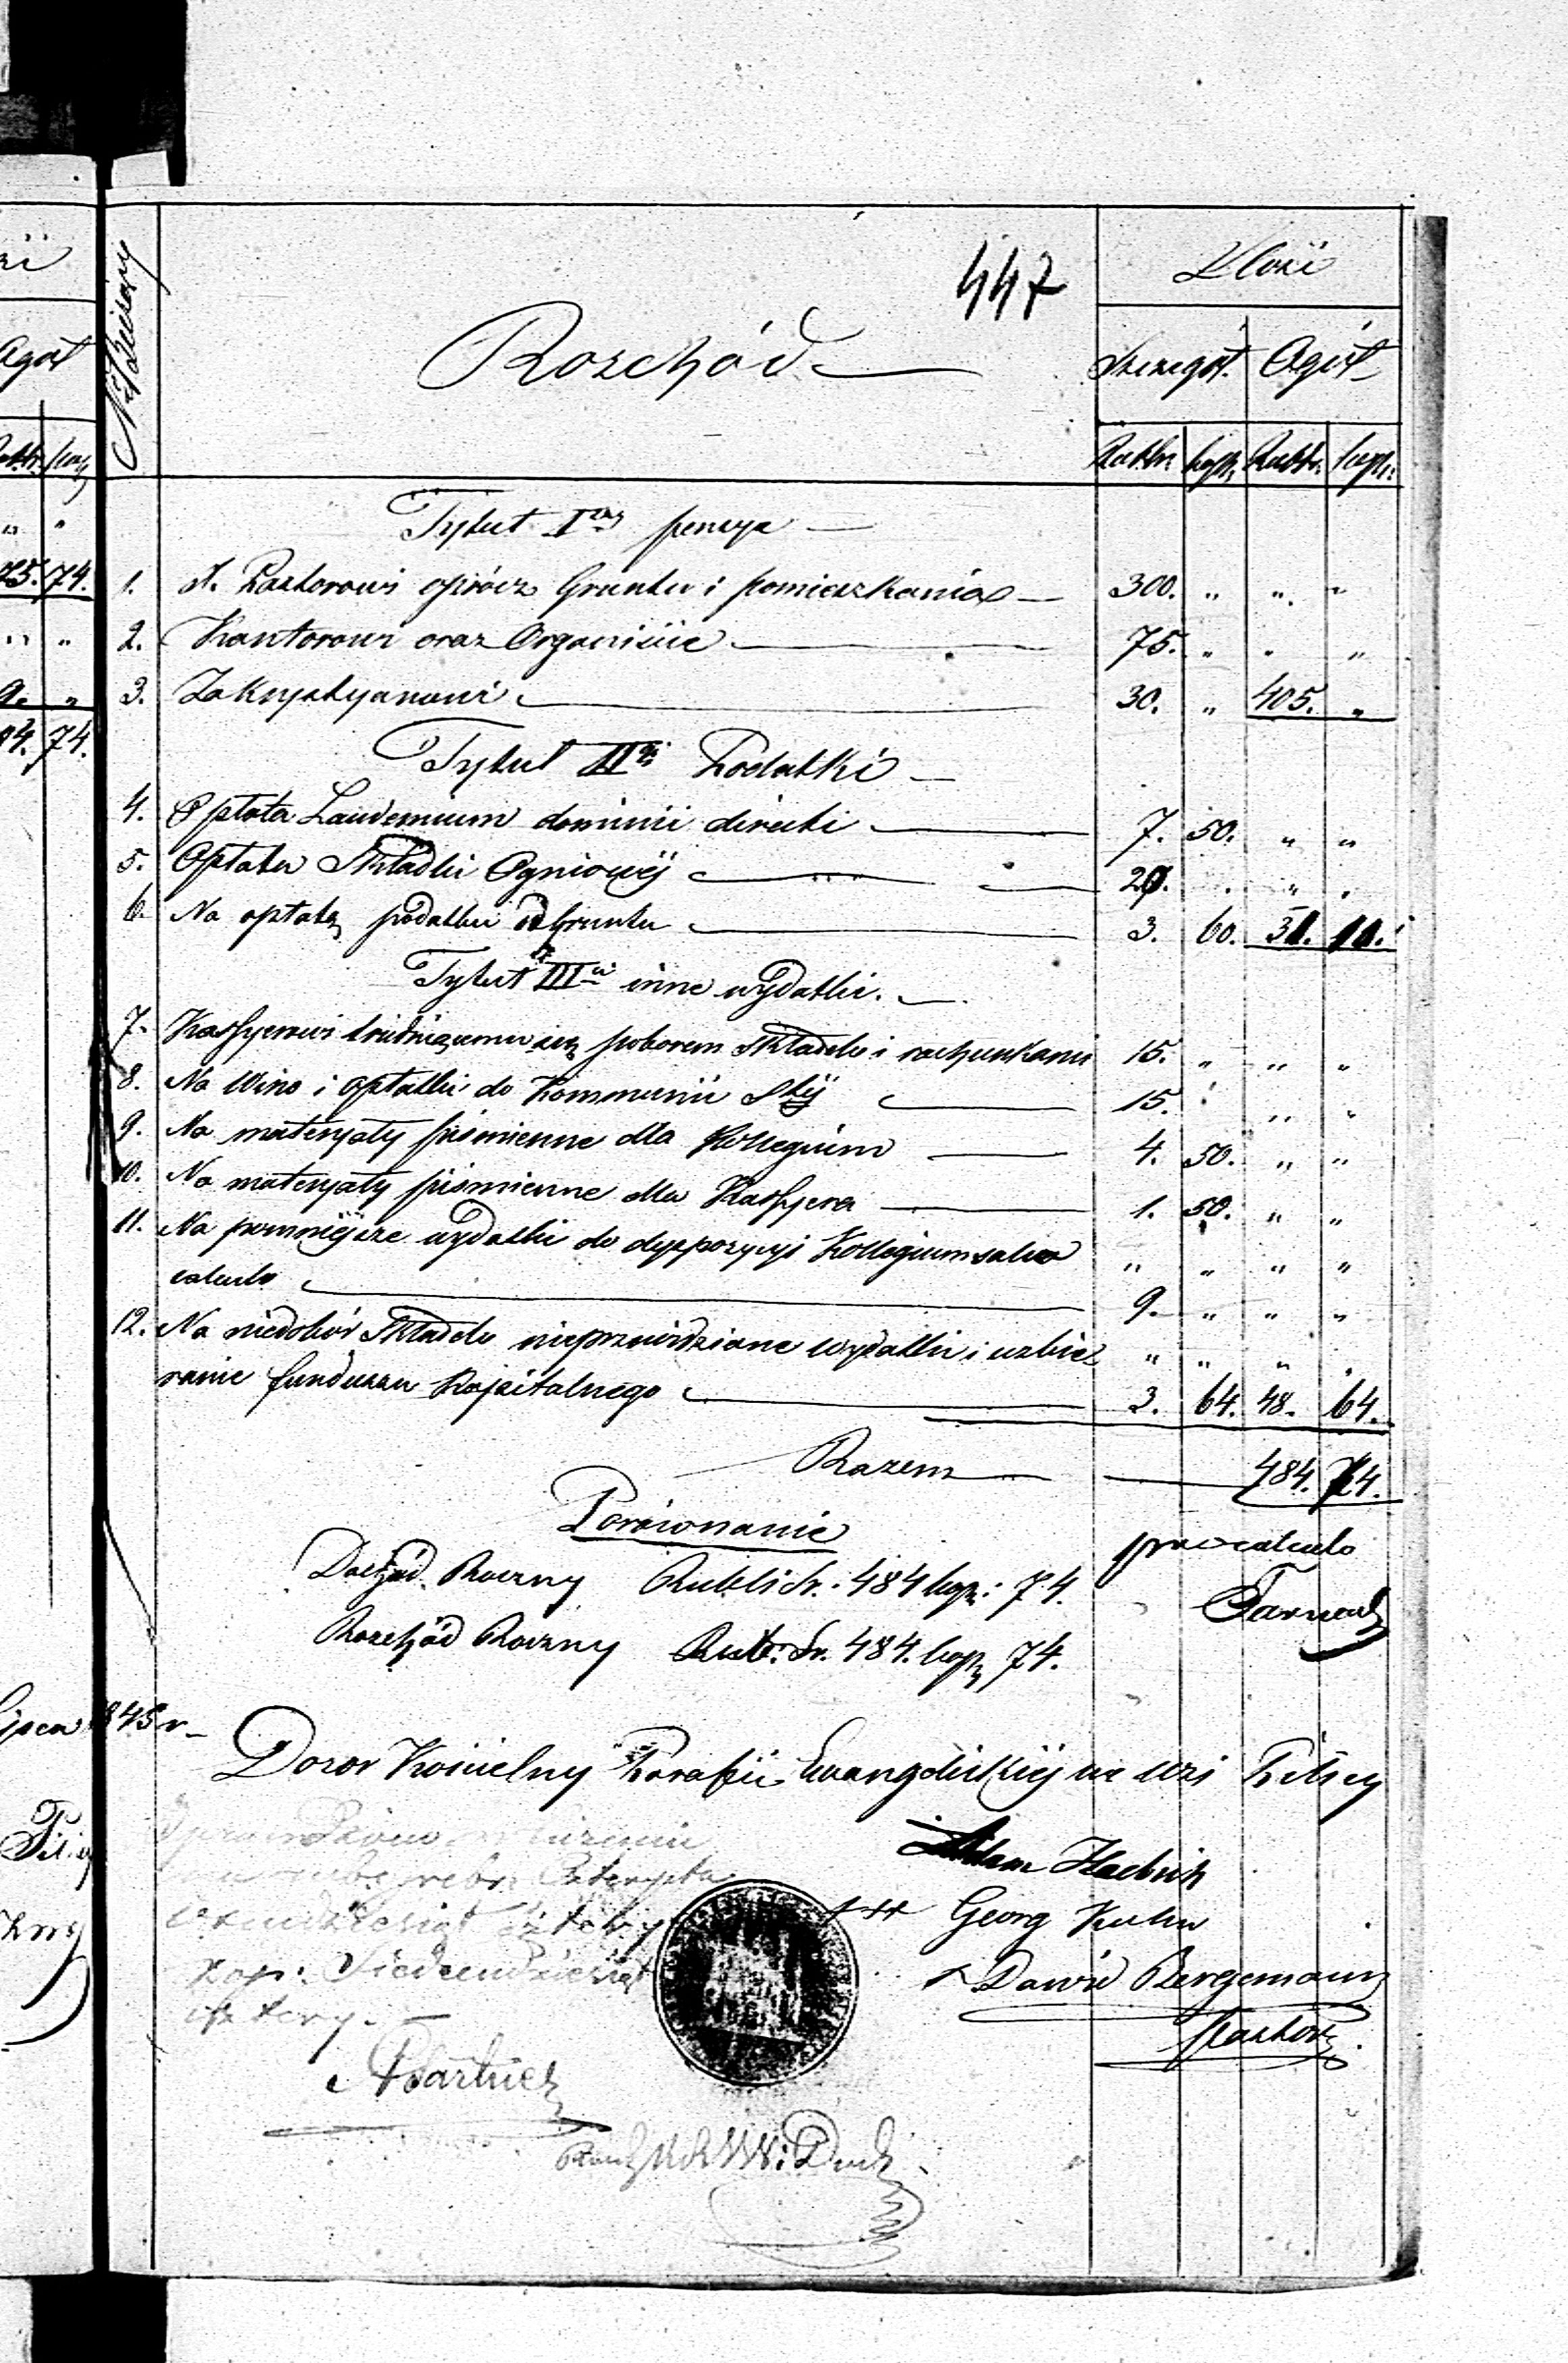 447
Ilość
N. bieżący
Rozchód
Szczegół. Ogół
Rubsr. kop. Rubsr. kop.
Tytuł Iszy pensye
1. X. Pastorowi oprócz Gruntu i pomieszkania 300. " " "
2. Kantorowi oraz Organiście 75. " " "
3. Zakrystyanowi 30. " 405. "
Tytuł IIgi Podatki
4. Opłata Laudemium dominii directi 7. 50. " "
5. Opłata Składki Ogniowéj 20. " "
6. Na opłatę podatku od Gruntu 3. 60. 31. 10.
Tytuł IIIci inne wydatki.
7. Kassyerowi trudniącemu się poborem Składek i rachunkami 15. " " "
8. Na Wino i opłatki do Kommunii Stéj 15. " "
9. Na materyały piśmienne dla Kollegium 4. 50. " "
10. Na materyały piśmienne dla Kassyera 1. 50. " "
11. Na pomniéjsze wydatki do dyspozycyi Kollegium salvo " " " "
calculo 9. " " "
12. Na niedobór Składek nieprzewidziane wydatki i uzbie= " " " "
ranie funduszu Kapitalnego 3. 64. 48. 64.
Razem 484. 74.
Porównanie
pro calculo
Dochód Roczny Rubli Sr. 484 kop: 74.
Rozchód Roczny Rub: Sr. 484. kop 74.
Lipca 1845 r.
Dozor Kościelny Parafii Ewangelickiéj we wsi Pilicy
Adam
+++ Georg Kuhn
Dawid Bergemann
Pastor
kop: Siedemdziesiąt
cztery.